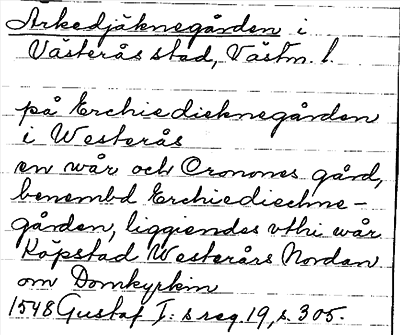 Arkedjäknegården i
Västerås stad, Västm. l.
på Erchiedieknegården
i Westerås
en wår och Cronones gård,
benembd Erchiediechne-
gården, liggiendes vthi wår
Köpstad Westerårs Nordan
om Domkyrkin
1548 Gustaf I: s reg. 19, s. 305.